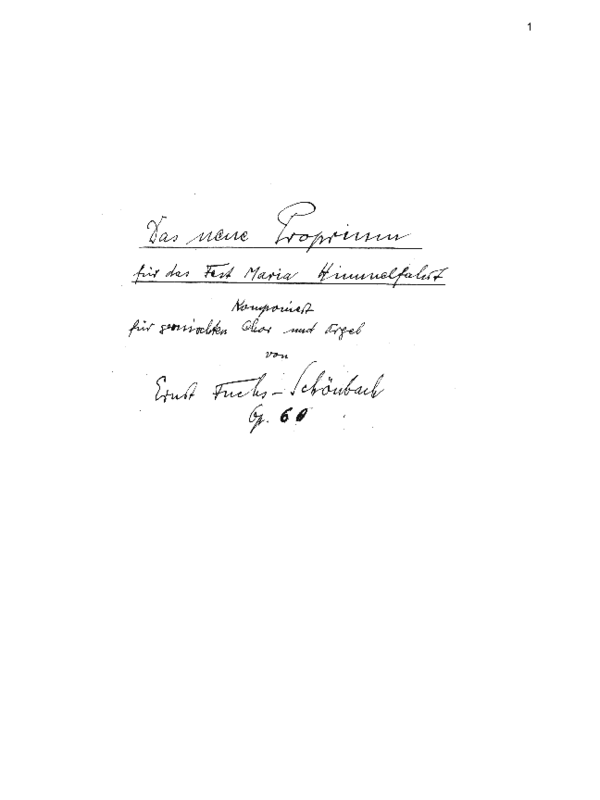 1
Das neue Proprium
für das Fest Maria Himmelfahrt
Komponiert
für gemischten Chor und Orgel
von
Ernst Fuchs-Schönbach
Op. 60